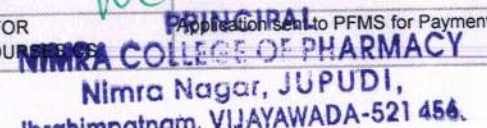 FOR Application sent to PFMS for Payment
PRINCIPAL
NIMRA COLLEGE OF PHARMACY
Nimra Nagar, JUPUDI,
Ibrahimpatnam, VIJAYAWADA-521 456.